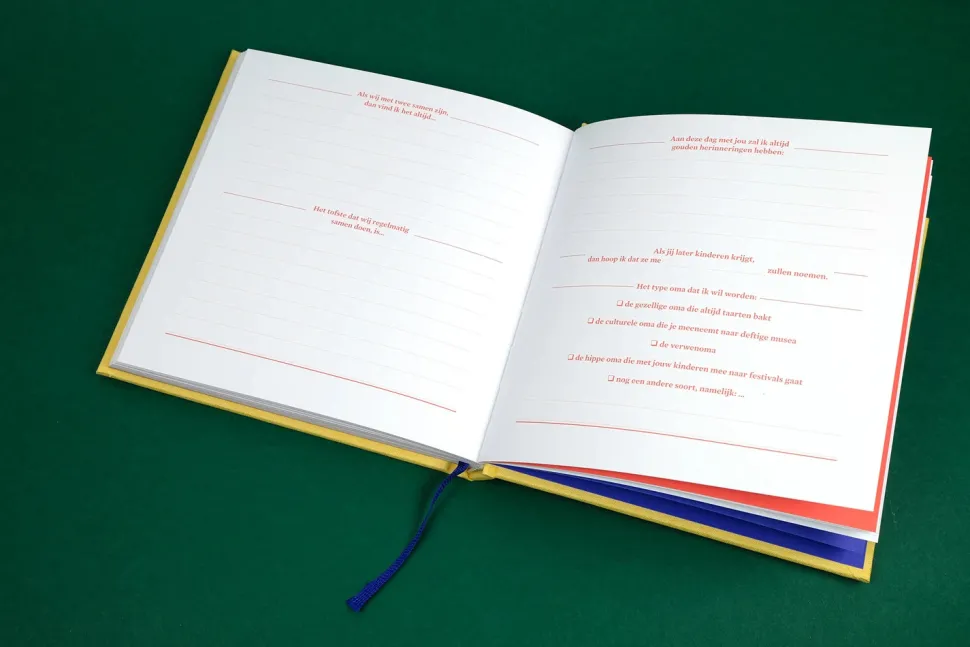 Als wij met twee samen zijn,
dan vind ik het altijd...
Het tofste dat wij regelmatig
samen doen, is...
Aan deze dag met jou zal ik altijd
gouden herinneringen hebben:
Als jij later kinderen krijgt,
dan hoop ik dat ze me zullen noemen.
Het type oma dat ik wil worden:
❑ de gezellige oma die altijd taarten bakt
❑ de culturele oma die je meeneemt naar deftige musea
❑ de verwenoma
❑ de hippe oma die met jouw kinderen mee naar festivals gaat
❑ nog een andere soort, namelijk: ...